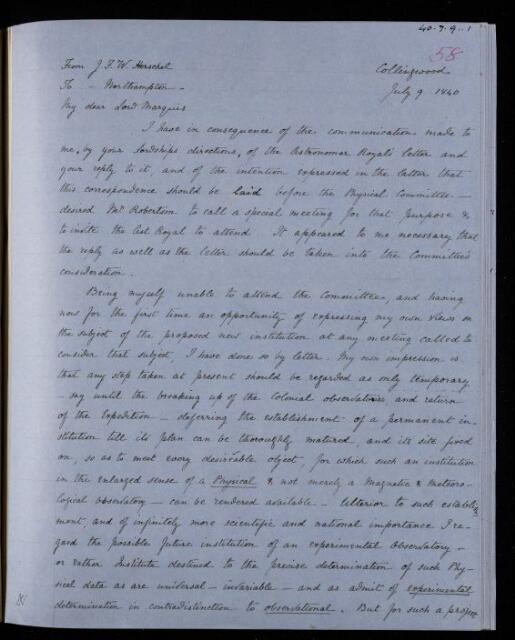 40-7-9-1
58
From J. F. W. Herschel
Collingwood
To - Northampton -
July 9 1840
My dear Lord Marquis
I have in consequence of the communication made to
me, by your lordships directions, of the Astronomer Royal's letter and
your reply to it, and of the intention expressed in the latter that
this correspondence should be laid before the Physical Committee -
desired Mr Robertson to call a special meeting for that purpose &
to invite the Ast Royal to attend. It appeared to me necessary that
the reply as well as the letter should be taken into the Committee's
consideration.
Being myself unable to attend the Committee, and having
now for the first time an opportunity of expressing my own views on
the subject of the proposed new institution at any meeting called to
consider that subject, I have done so by letter. My own impression is
that any step taken at present should be regarded as only temporary
- say until the breaking up of the Colonial observatories and return
of the Expedition - deferring the establishment of a permanent in-
stitution till its plan can be thoroughly matured, and its site fixed
on, so as to meet every desireable object, for which such an institution
in the enlarged sense of a Physical & not merely a Magnetic & Meteoro-
logical observatory - can be rendered available - Ulterior to such establish
ment, and of infinitely more scientific and national importance I re-
gard the possible future institution of an experimental Observatory -
or rather Institute destined to the precise determination of such Phy-
sical data as are universal - invariable - and as admit of experimental
determination in contradistinction to observational. But for such a project